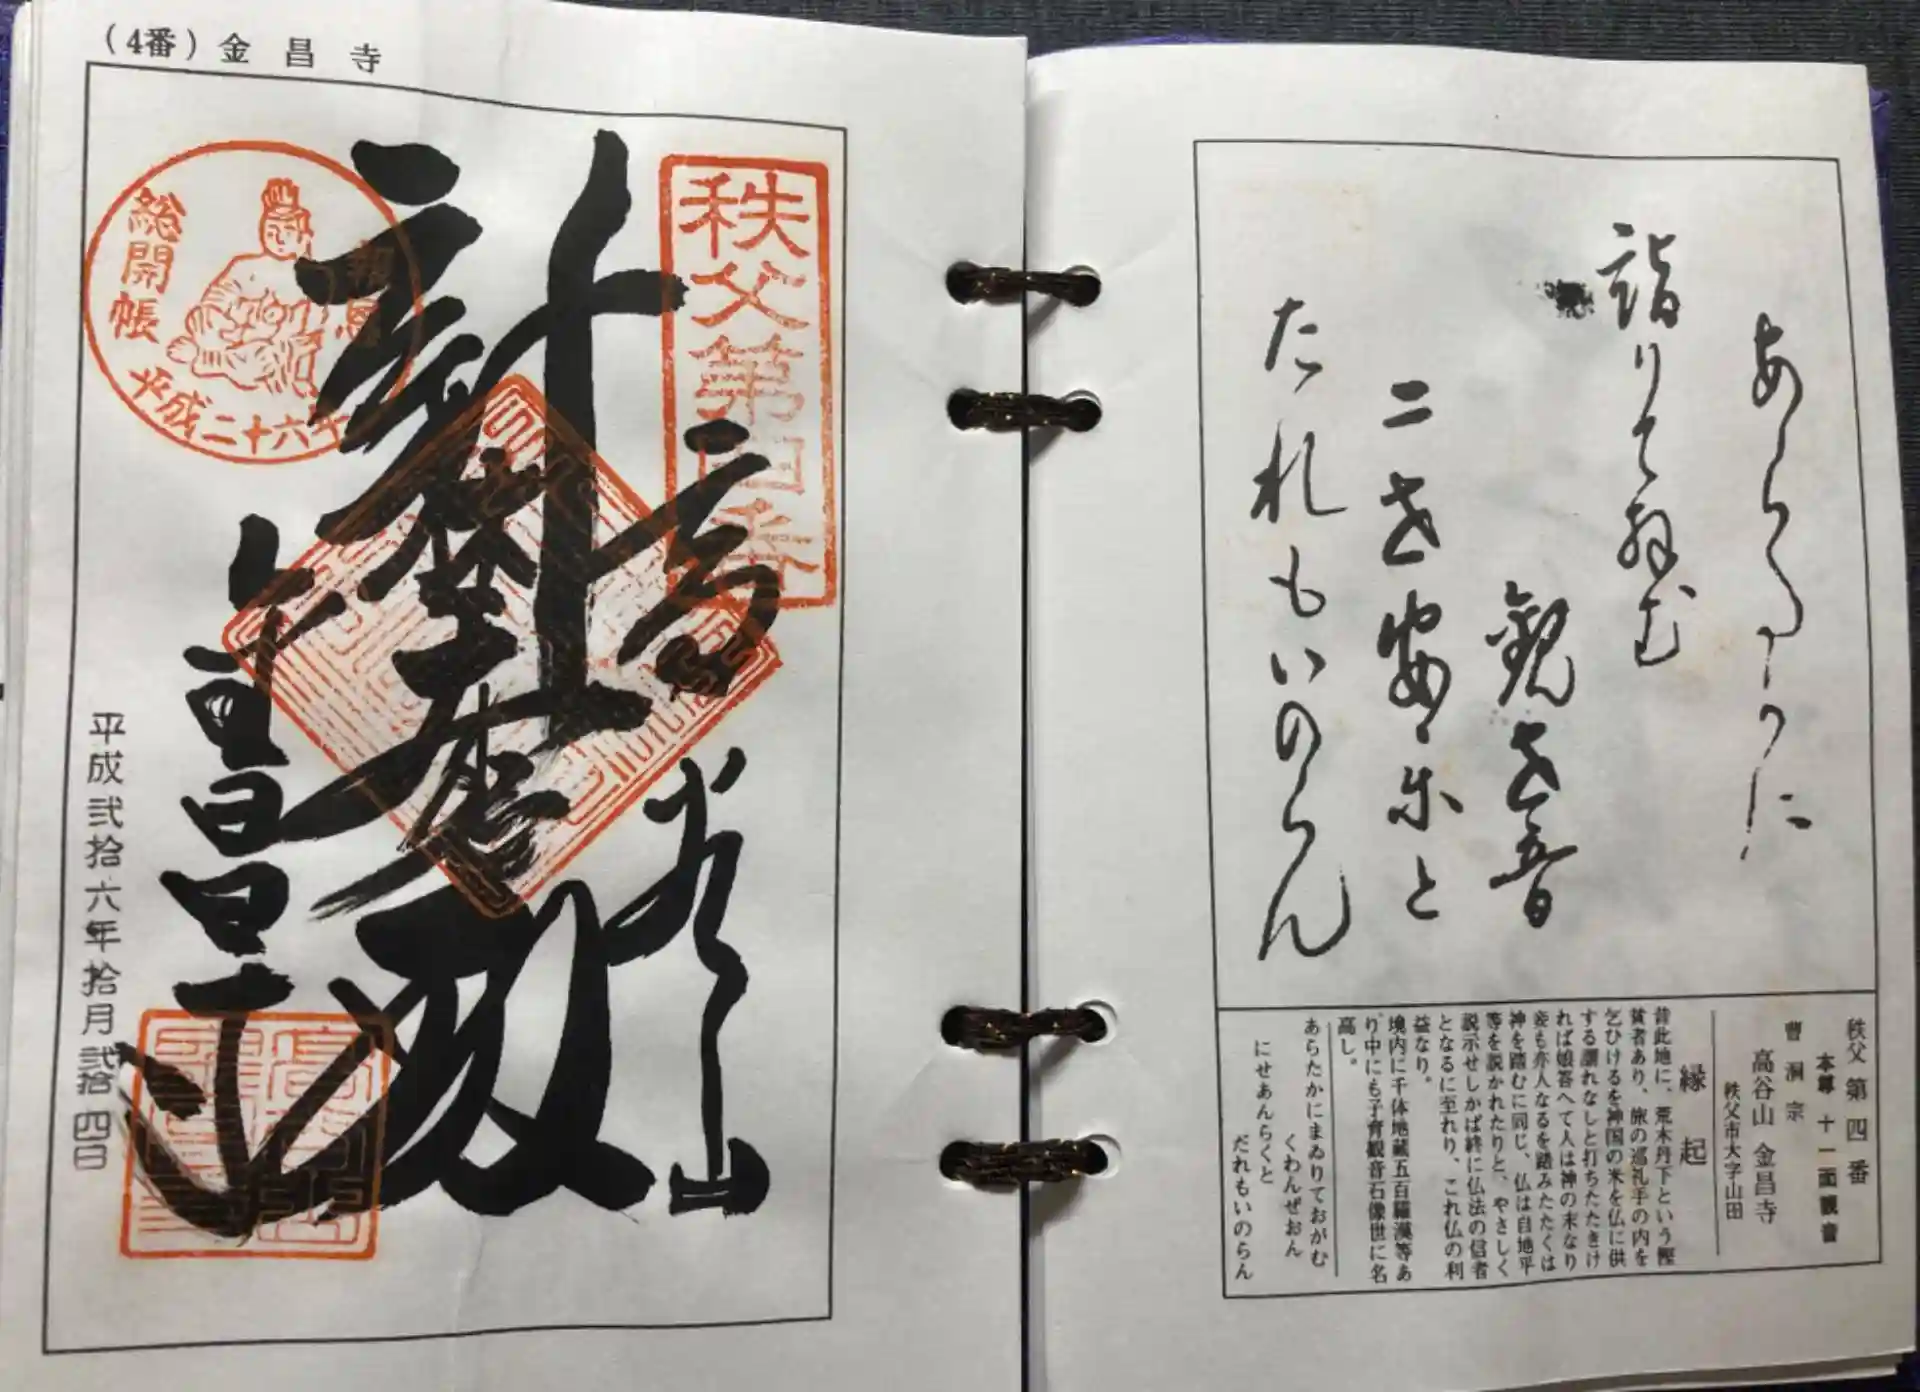 (4番) 金昌寺
秩父第四番
総開帳
平成二十六年
高谷山
平成弐拾六年拾月弐拾四日
あらたかに
詣りておがむ
観世音
二世安楽と
たれもいのらん
秩父 第四番
本尊 十一面観音
曹洞宗
高谷山 金昌寺
秩父市大字山田
縁起
昔此地に、荒木丹下という慳
貧者あり、旅の巡礼手の内を
乞ひけるを神国の米を仏に供
する謂れなしと打ちたたきけ
れば娘答へて人は神の末なり
妾も亦人なるを踏みたたくは
神を踏むに同じ、仏は自地平
等を説かれたりと、やさしく
説示せしかば終に仏法の信者
となるに至れり、これ仏の利
益なり。
境内に千体地蔵五百羅漢等あ
り中にも子育観音石像世に名
高し。
あらたかにまゐりておがむ
くわんぜおん
にせあんらくと
だれもいのらん